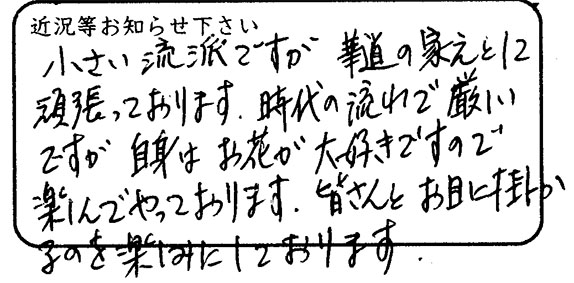 近況等お知らせ下さい
小さい流派ですが 華道の家元として
頑張っております。時代の流れで厳しい
ですが 自身は お花が 大好きですので
楽しんでやっております。皆さんと お目に掛か
るのを楽しみにしております.